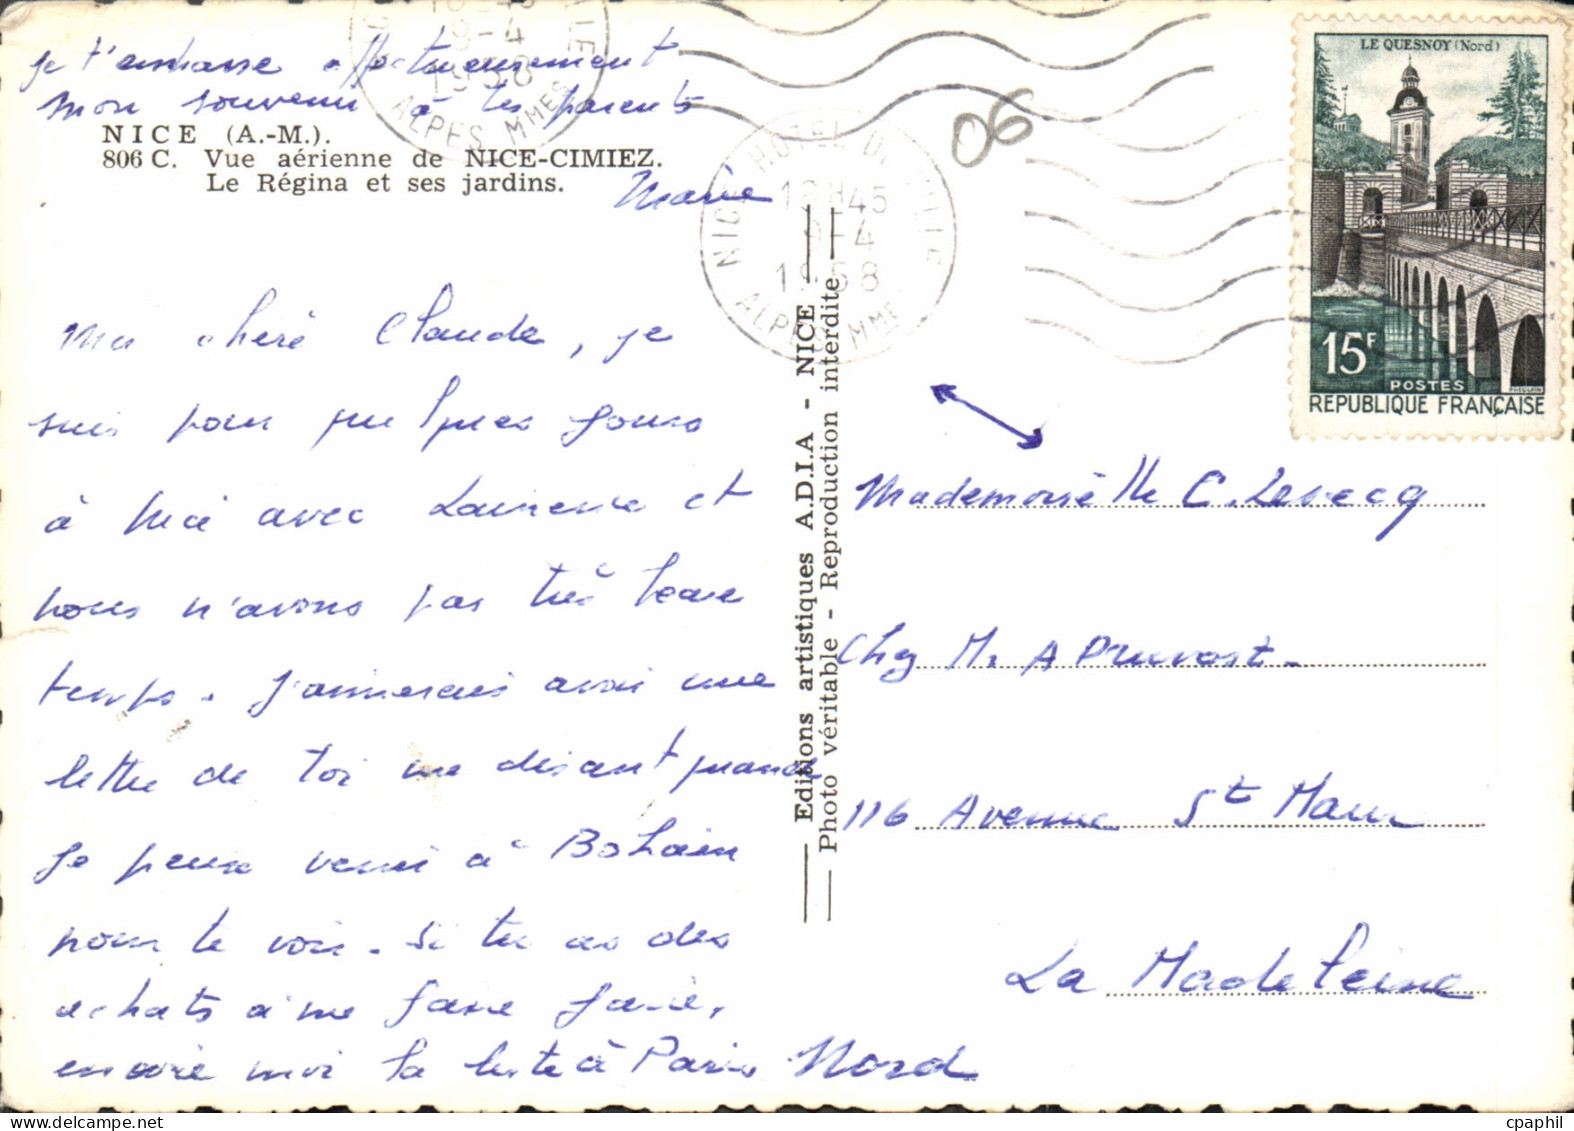 je t'embrasse affectueusement
mon souvenir à tes parents
NICE (A.-M.).
806 C. Vue aérienne de NICE-CIMIEZ.
Le Régina et ses jardins.
Marie
Ma chère Claude, je
suis pour quelques jours
à Nice avec Laurence et
nous n'avons pas très beau
temps. J'aimerais avoir une
lettre de toi me disant quand
je peux venir à Bohain
pour te voir. Si tu as des
achats à me faire faire,
envoie moi la liste à Paris
Editions artistiques A.D.I.A - NICE
Photo véritable - Reproduction interdite
NICE HOTEL DE VILLE
18H45
9-4
1958
ALPES MMES
06
LE QUESNOY (Nord)
15F
POSTES
REPUBLIQUE FRANÇAISE
Mademoiselle C. Lesecq
Chez M. A Pruvost.
116 Avenue St Maur
La Madeleine
Nord
cpaphil